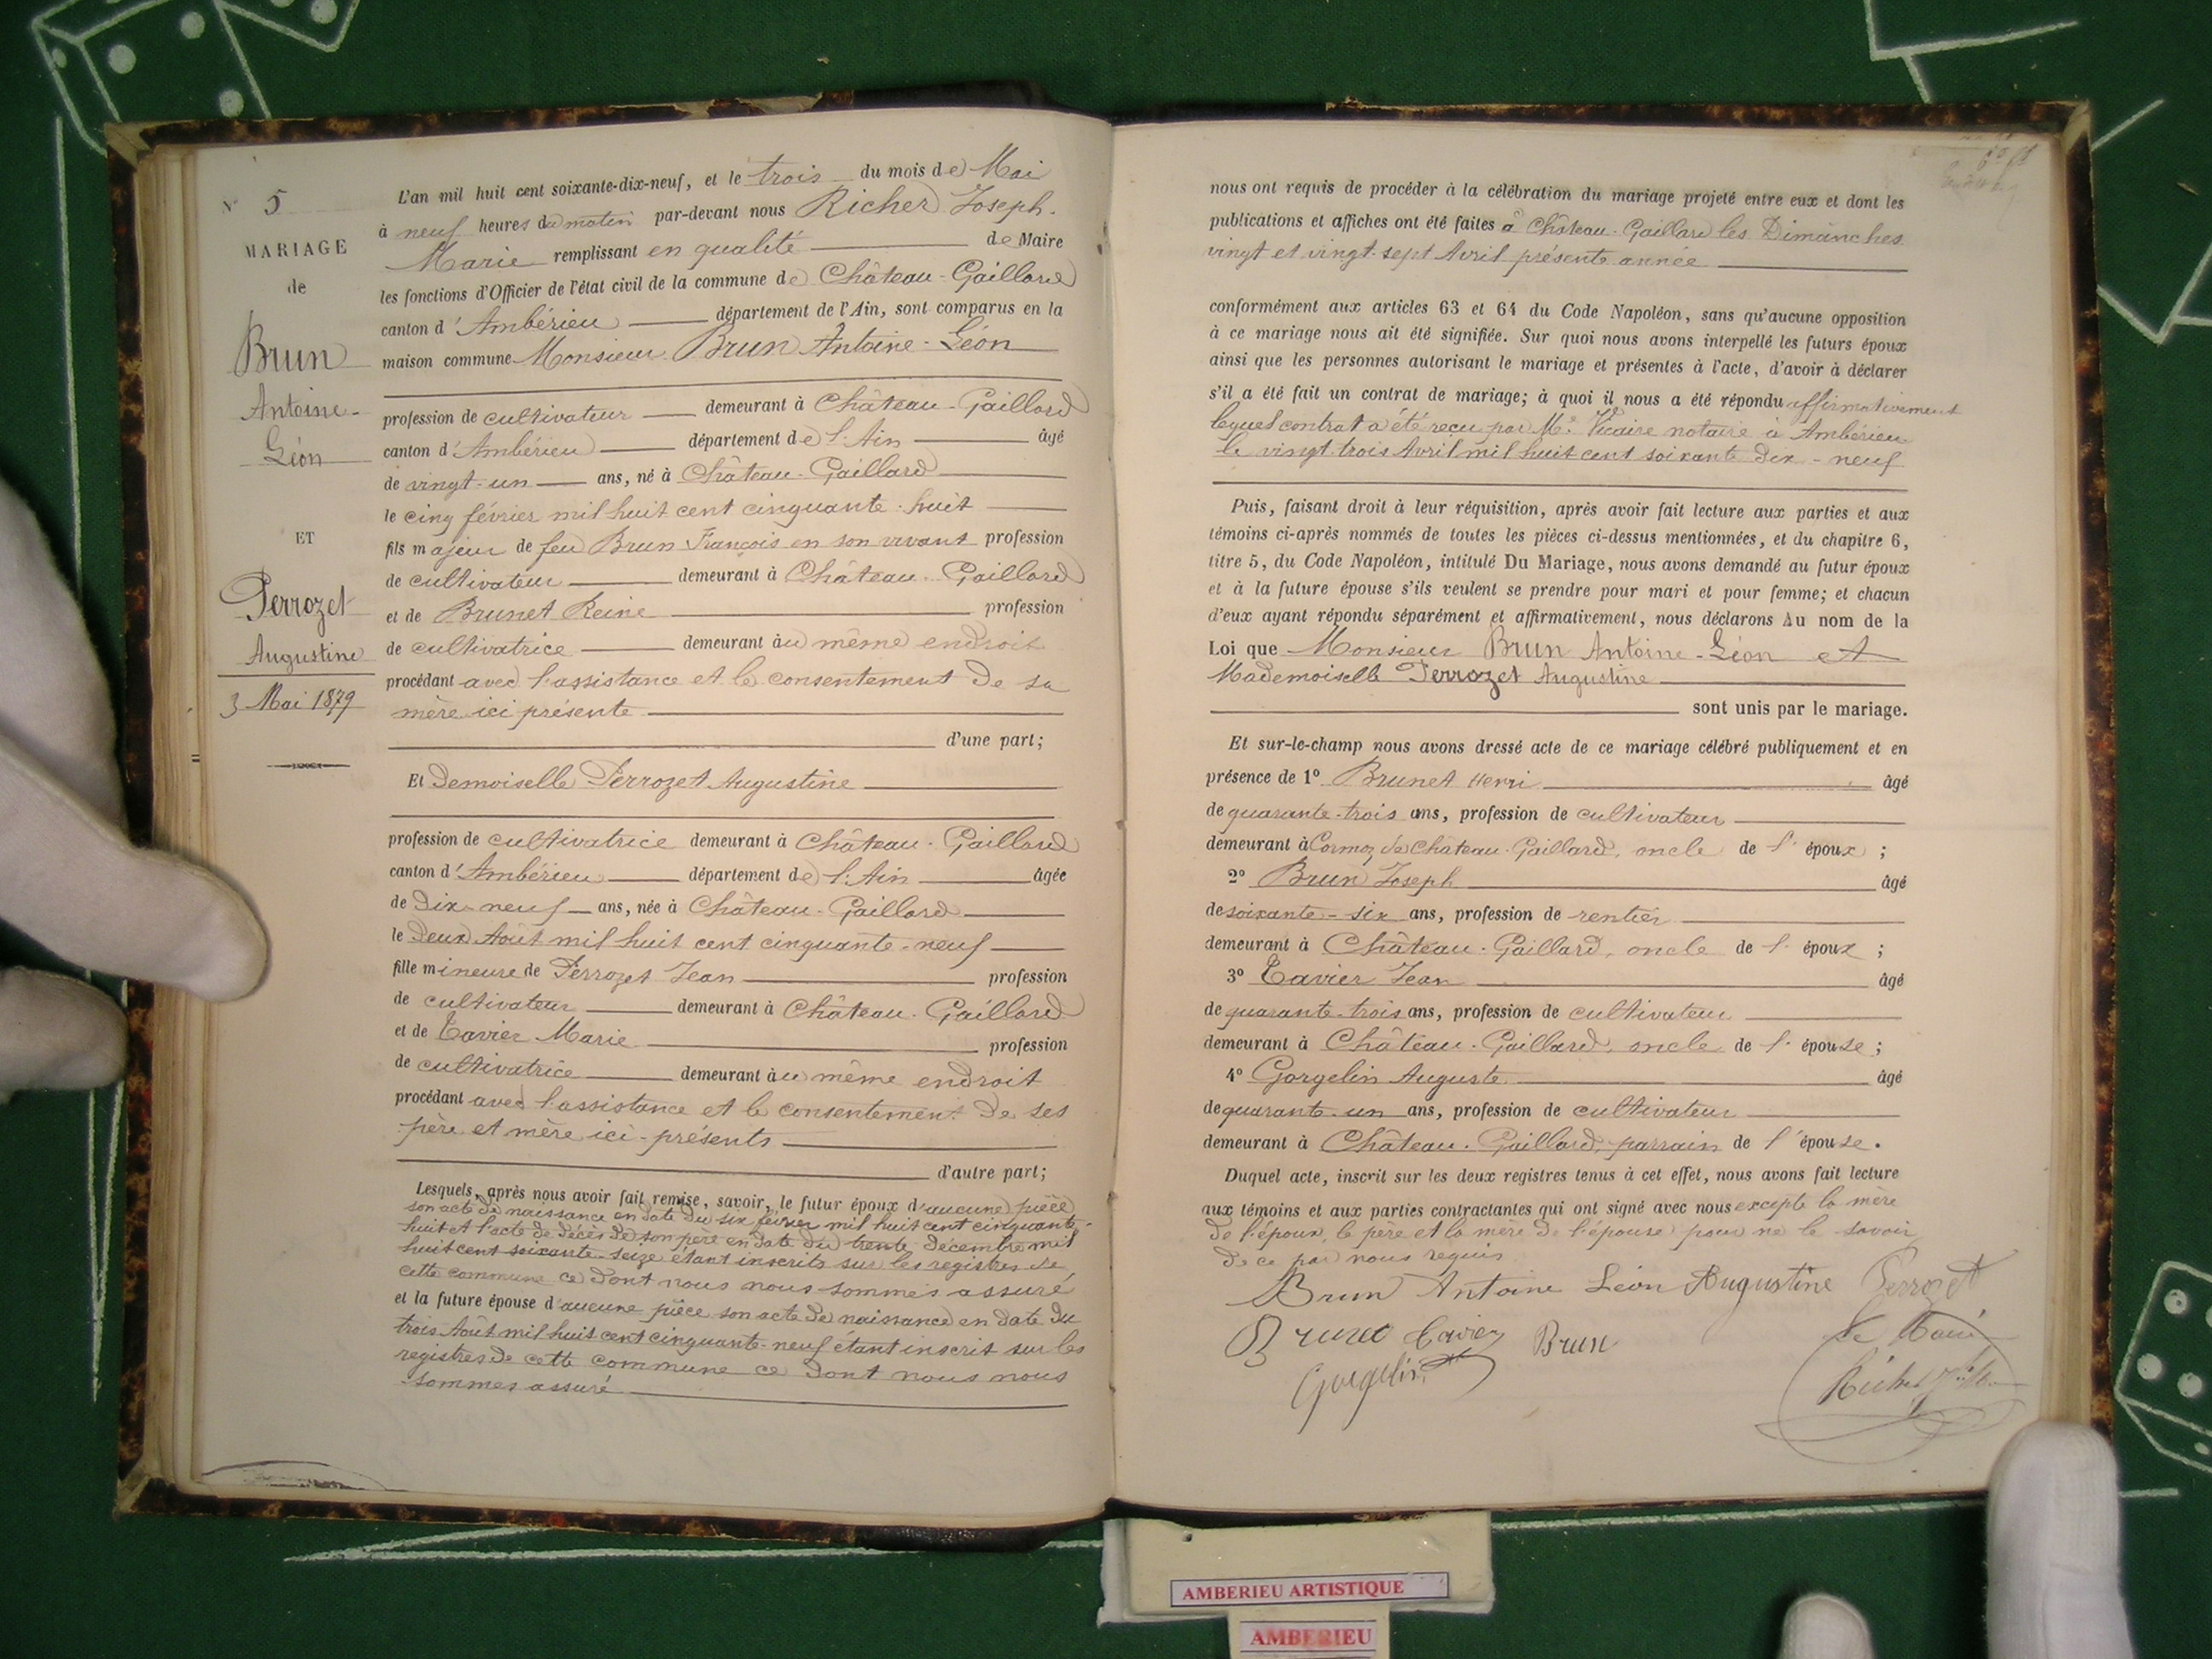 N° 5
MARIAGE
de
Brun
Antoine-
Léon
ET
Perrozet
Augustine
3 Mai 1879
L'an mil huit cent soixante-dix-neuf, et le trois du mois de Mai
à neuf heures du matin par-devant nous Richer Joseph-
Marie remplissant en qualité de Maire
les fonctions d'Officier de l'état civil de la commune de Château-Gaillard
canton d'Ambérieu département de l'Ain, sont comparus en la
maison commune Monsieur Brun Antoine-Léon
profession de cultivateur demeurant à Château-Gaillard
canton d'Ambérieu département de l'Ain âgé
de vingt-un ans, né à Château-Gaillard
le cinq février mil huit cent cinquante-huit
fils majeur de feu Brun François en son vivant profession
de cultivateur demeurant à Château-Gaillard
et de Brunet Reine profession
de cultivatrice demeurant au même endroit
procédant avec l'assistance et le consentement de sa
mère ici présente
d'une part;
Et Demoiselle Perrozet Augustine
profession de cultivatrice demeurant à Château-Gaillard
canton d'Ambérieu département de l'Ain âgée
de dix-neuf ans, née à Château-Gaillard
le deux Août mil huit cent cinquante-neuf
fille mineure de Perrozet Jean profession
de cultivateur demeurant à Château-Gaillard
et de Tavier Marie profession
de cultivatrice demeurant au même endroit
procédant avec l'assistance et le consentement de ses
père et mère ici-présents
d'autre part;
Lesquels, après nous avoir fait remise, savoir, le futur époux d'aucune pièce
son acte de naissance en date du six février mil huit cent cinquante-
huit et l'acte de décès de son père en date du trente décembre mil
huit cent soixante-seize étant inscrits sur les registres de
cette commune ce dont nous nous sommes assuré
et la future épouse d'aucune pièce son acte de naissance en date du
trois Août mil huit cent cinquante-neuf étant inscrit sur les
registres de cette commune ce dont nous nous
sommes assuré
nous ont requis de procéder à la célébration du mariage projeté entre eux et dont les
publications et affiches ont été faites à Château-Gaillard les Dimanches
vingt et vingt-sept Avril présente année
conformément aux articles 63 et 64 du Code Napoléon, sans qu'aucune opposition
à ce mariage nous ait été signifiée. Sur quoi nous avons interpellé les futurs époux
ainsi que les personnes autorisant le mariage et présentes à l'acte, d'avoir à déclarer
s'il a été fait un contrat de mariage; à quoi il nous a été répondu affirmativement
lequel contrat a été reçu par Me Vicaire notaire à Ambérieu
le vingt trois Avril mil huit cent soixante dix-neuf
Puis, faisant droit à leur réquisition, après avoir fait lecture aux parties et aux
témoins ci-après nommés de toutes les pièces ci-dessus mentionnées, et du chapitre 6,
titre 5, du Code Napoléon, intitulé Du Mariage, nous avons demandé au futur époux
et à la future épouse s'ils veulent se prendre pour mari et pour femme; et chacun
d'eux ayant répondu séparément et affirmativement, nous déclarons Au nom de la
Loi que Monsieur Brun Antoine-Léon et
Mademoiselle Perrozet Augustine
sont unis par le mariage.
Et sur-le-champ nous avons dressé acte de ce mariage célébré publiquement et en
présence de 1° Brunet Henri âgé
de quarante-trois ans, profession de cultivateur
demeurant à Cormoz de Château-Gaillard, oncle de l'époux ;
2° Brun Joseph âgé
de soixante-six ans, profession de rentier
demeurant à Château-Gaillard, oncle de l'époux ;
3° Tavier Jean âgé
de quarante-trois ans, profession de cultivateur
demeurant à Château-Gaillard, oncle de l'épouse ;
4° Gorgelin Auguste âgé
de quarante-un ans, profession de cultivateur
demeurant à Château-Gaillard, parrain de l'épouse.
Duquel acte, inscrit sur les deux registres tenus à cet effet, nous avons fait lecture
aux témoins et aux parties contractantes qui ont signé avec nous excepté la mère
de l'époux, le père et la mère de l'épouse pour ne le savoir
de ce par nous requis.
Brun Antoine Léon Augustine Perrozet
Brunet Tavier Brun Le Maire
Gorgelin Richer
AMBERIEU ARTISTIQUE
AMBERIEU